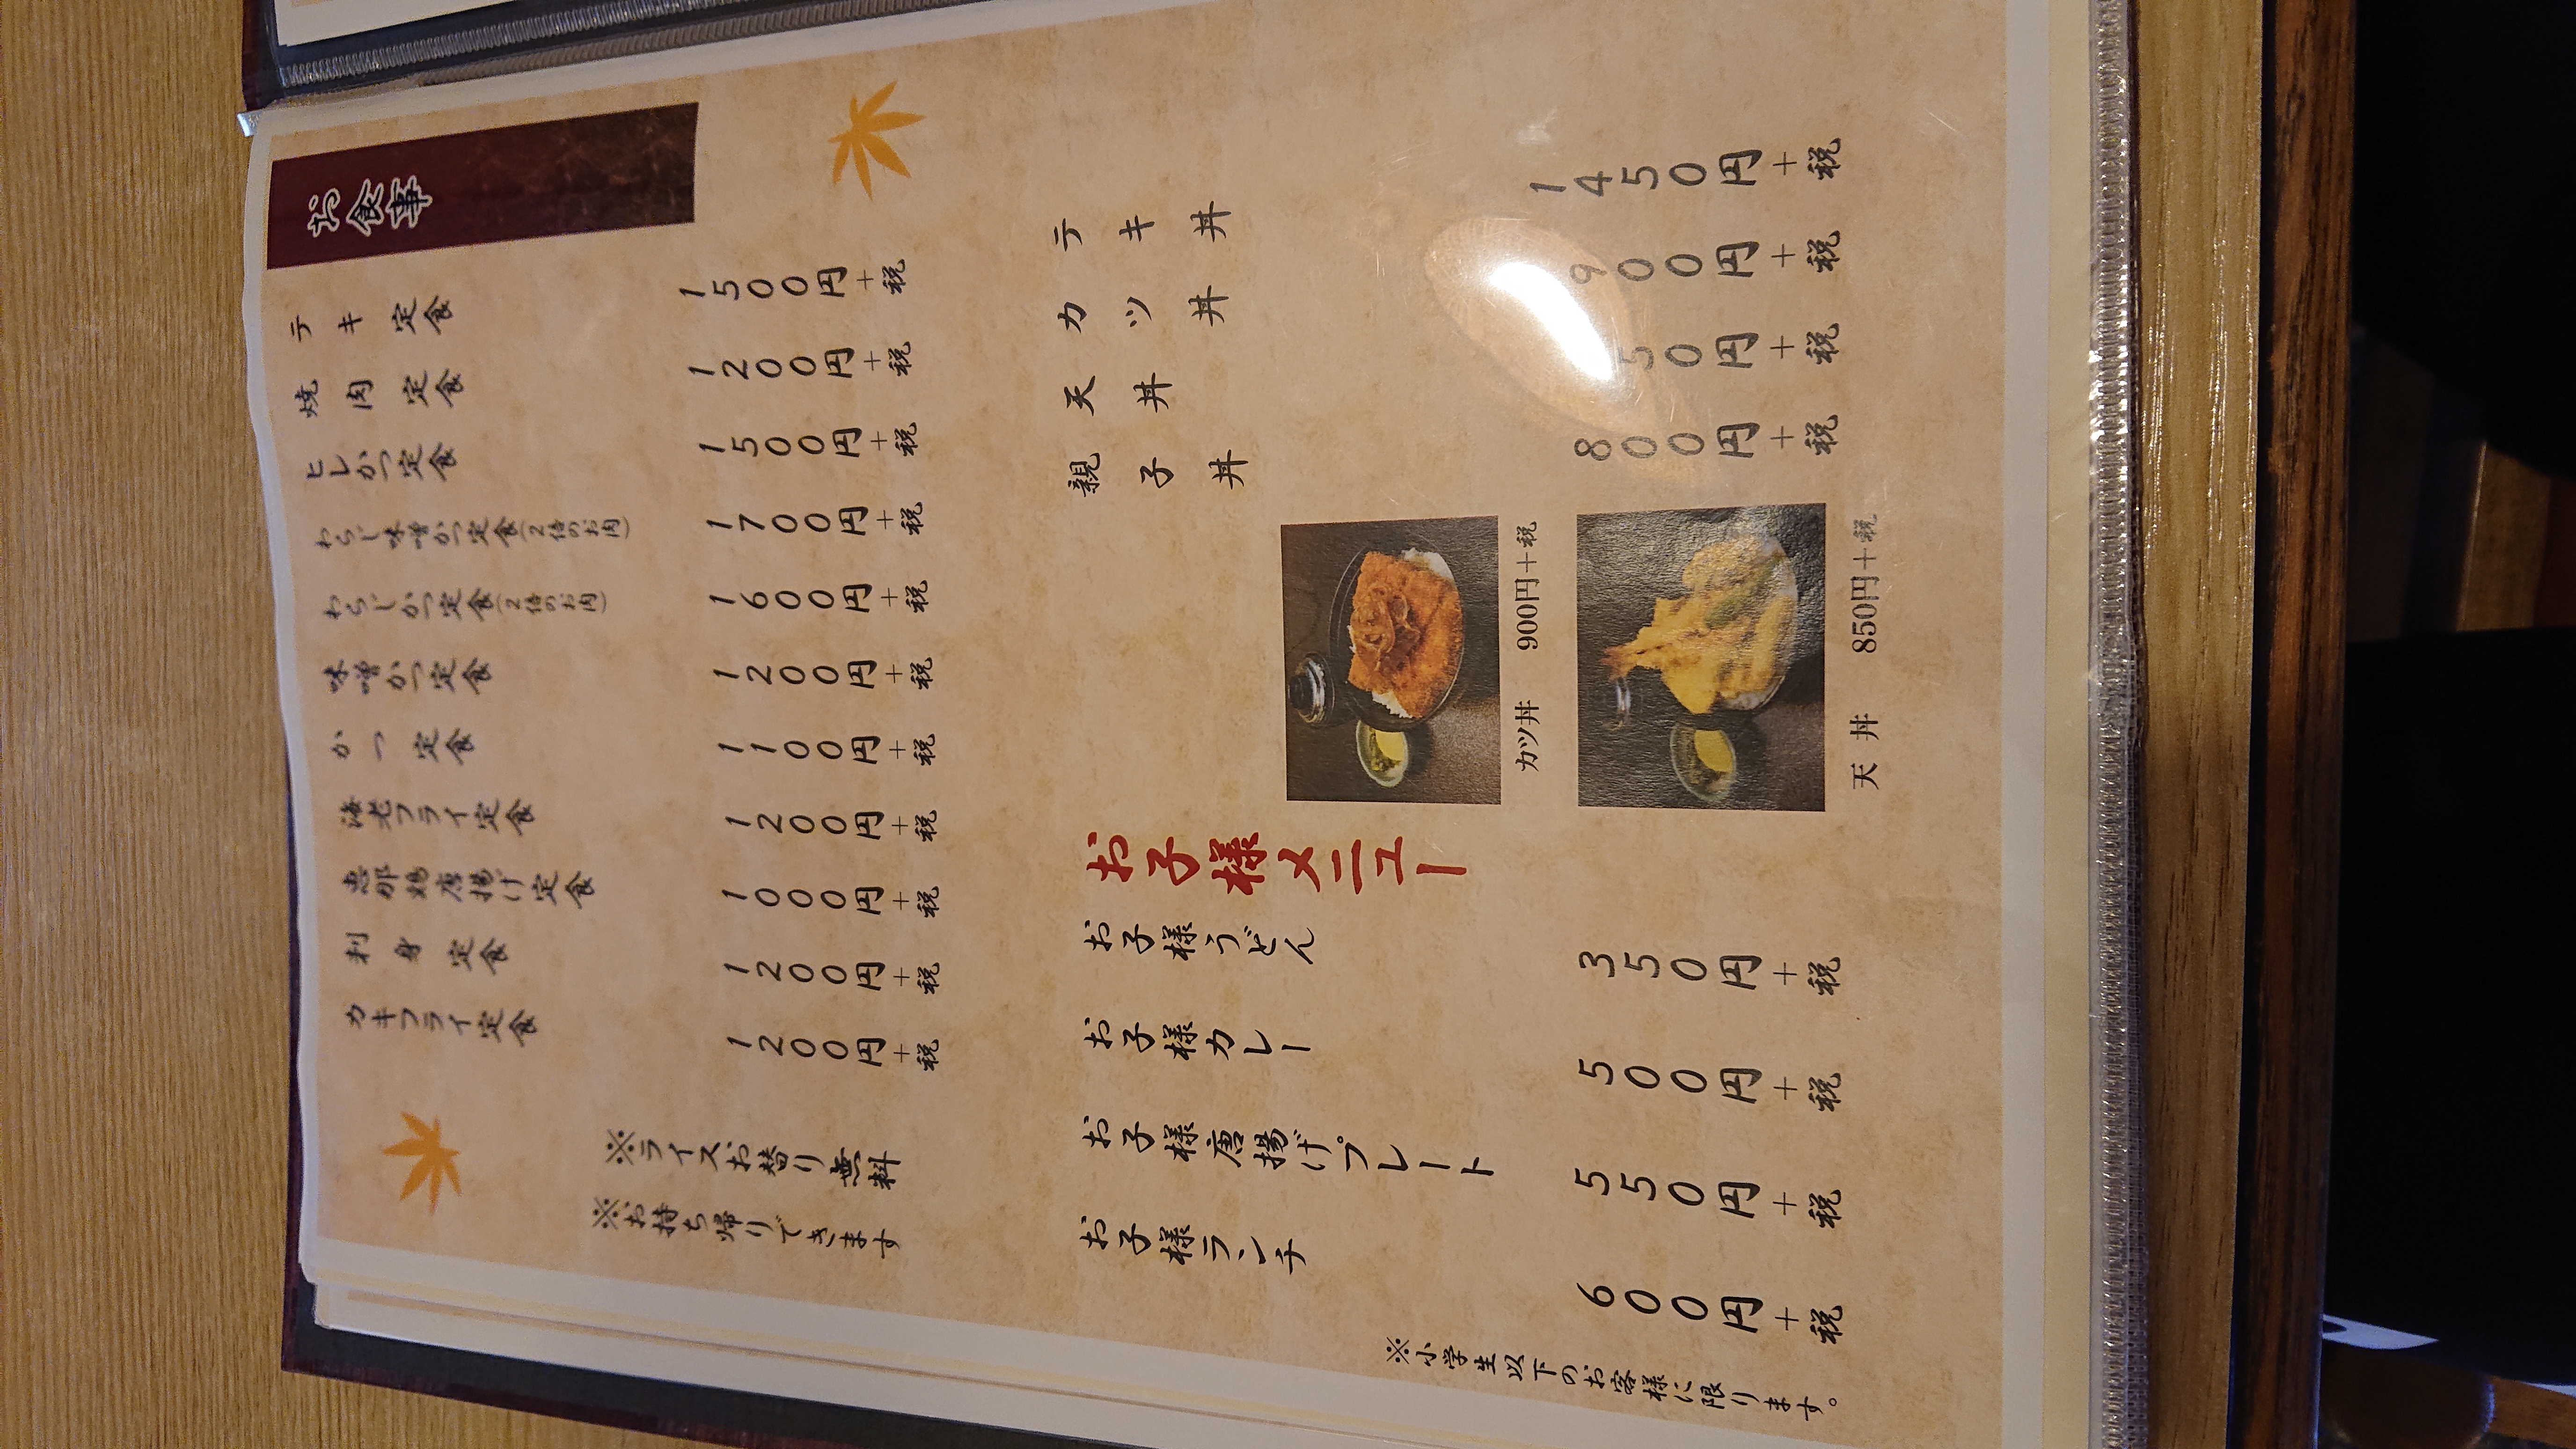 お食事
テキ定食 1500円+税
焼肉定食 1200円+税
ヒレかつ定食 1500円+税
わらじ味噌かつ定食(2倍のお肉) 1700円+税
わらじかつ定食(2倍のお肉) 1600円+税
味噌かつ定食 1200円+税
かつ定食 1100円+税
海老フライ定食 1200円+税
恵那鶏唐揚げ定食 1000円+税
刺身定食 1200円+税
カキフライ定食 1200円+税
※ライスお替り無料
※お持ち帰りできます
テキ丼 1450円+税
カツ丼 900円+税
天丼 50円+税
親子丼 800円+税
カツ丼 900円+税
天丼 850円+税
お子様メニュー
お子様うどん 350円+税
お子様カレー 500円+税
お子様唐揚げプレート 550円+税
お子様ランチ 600円+税
※小学生以下のお客様に限ります。